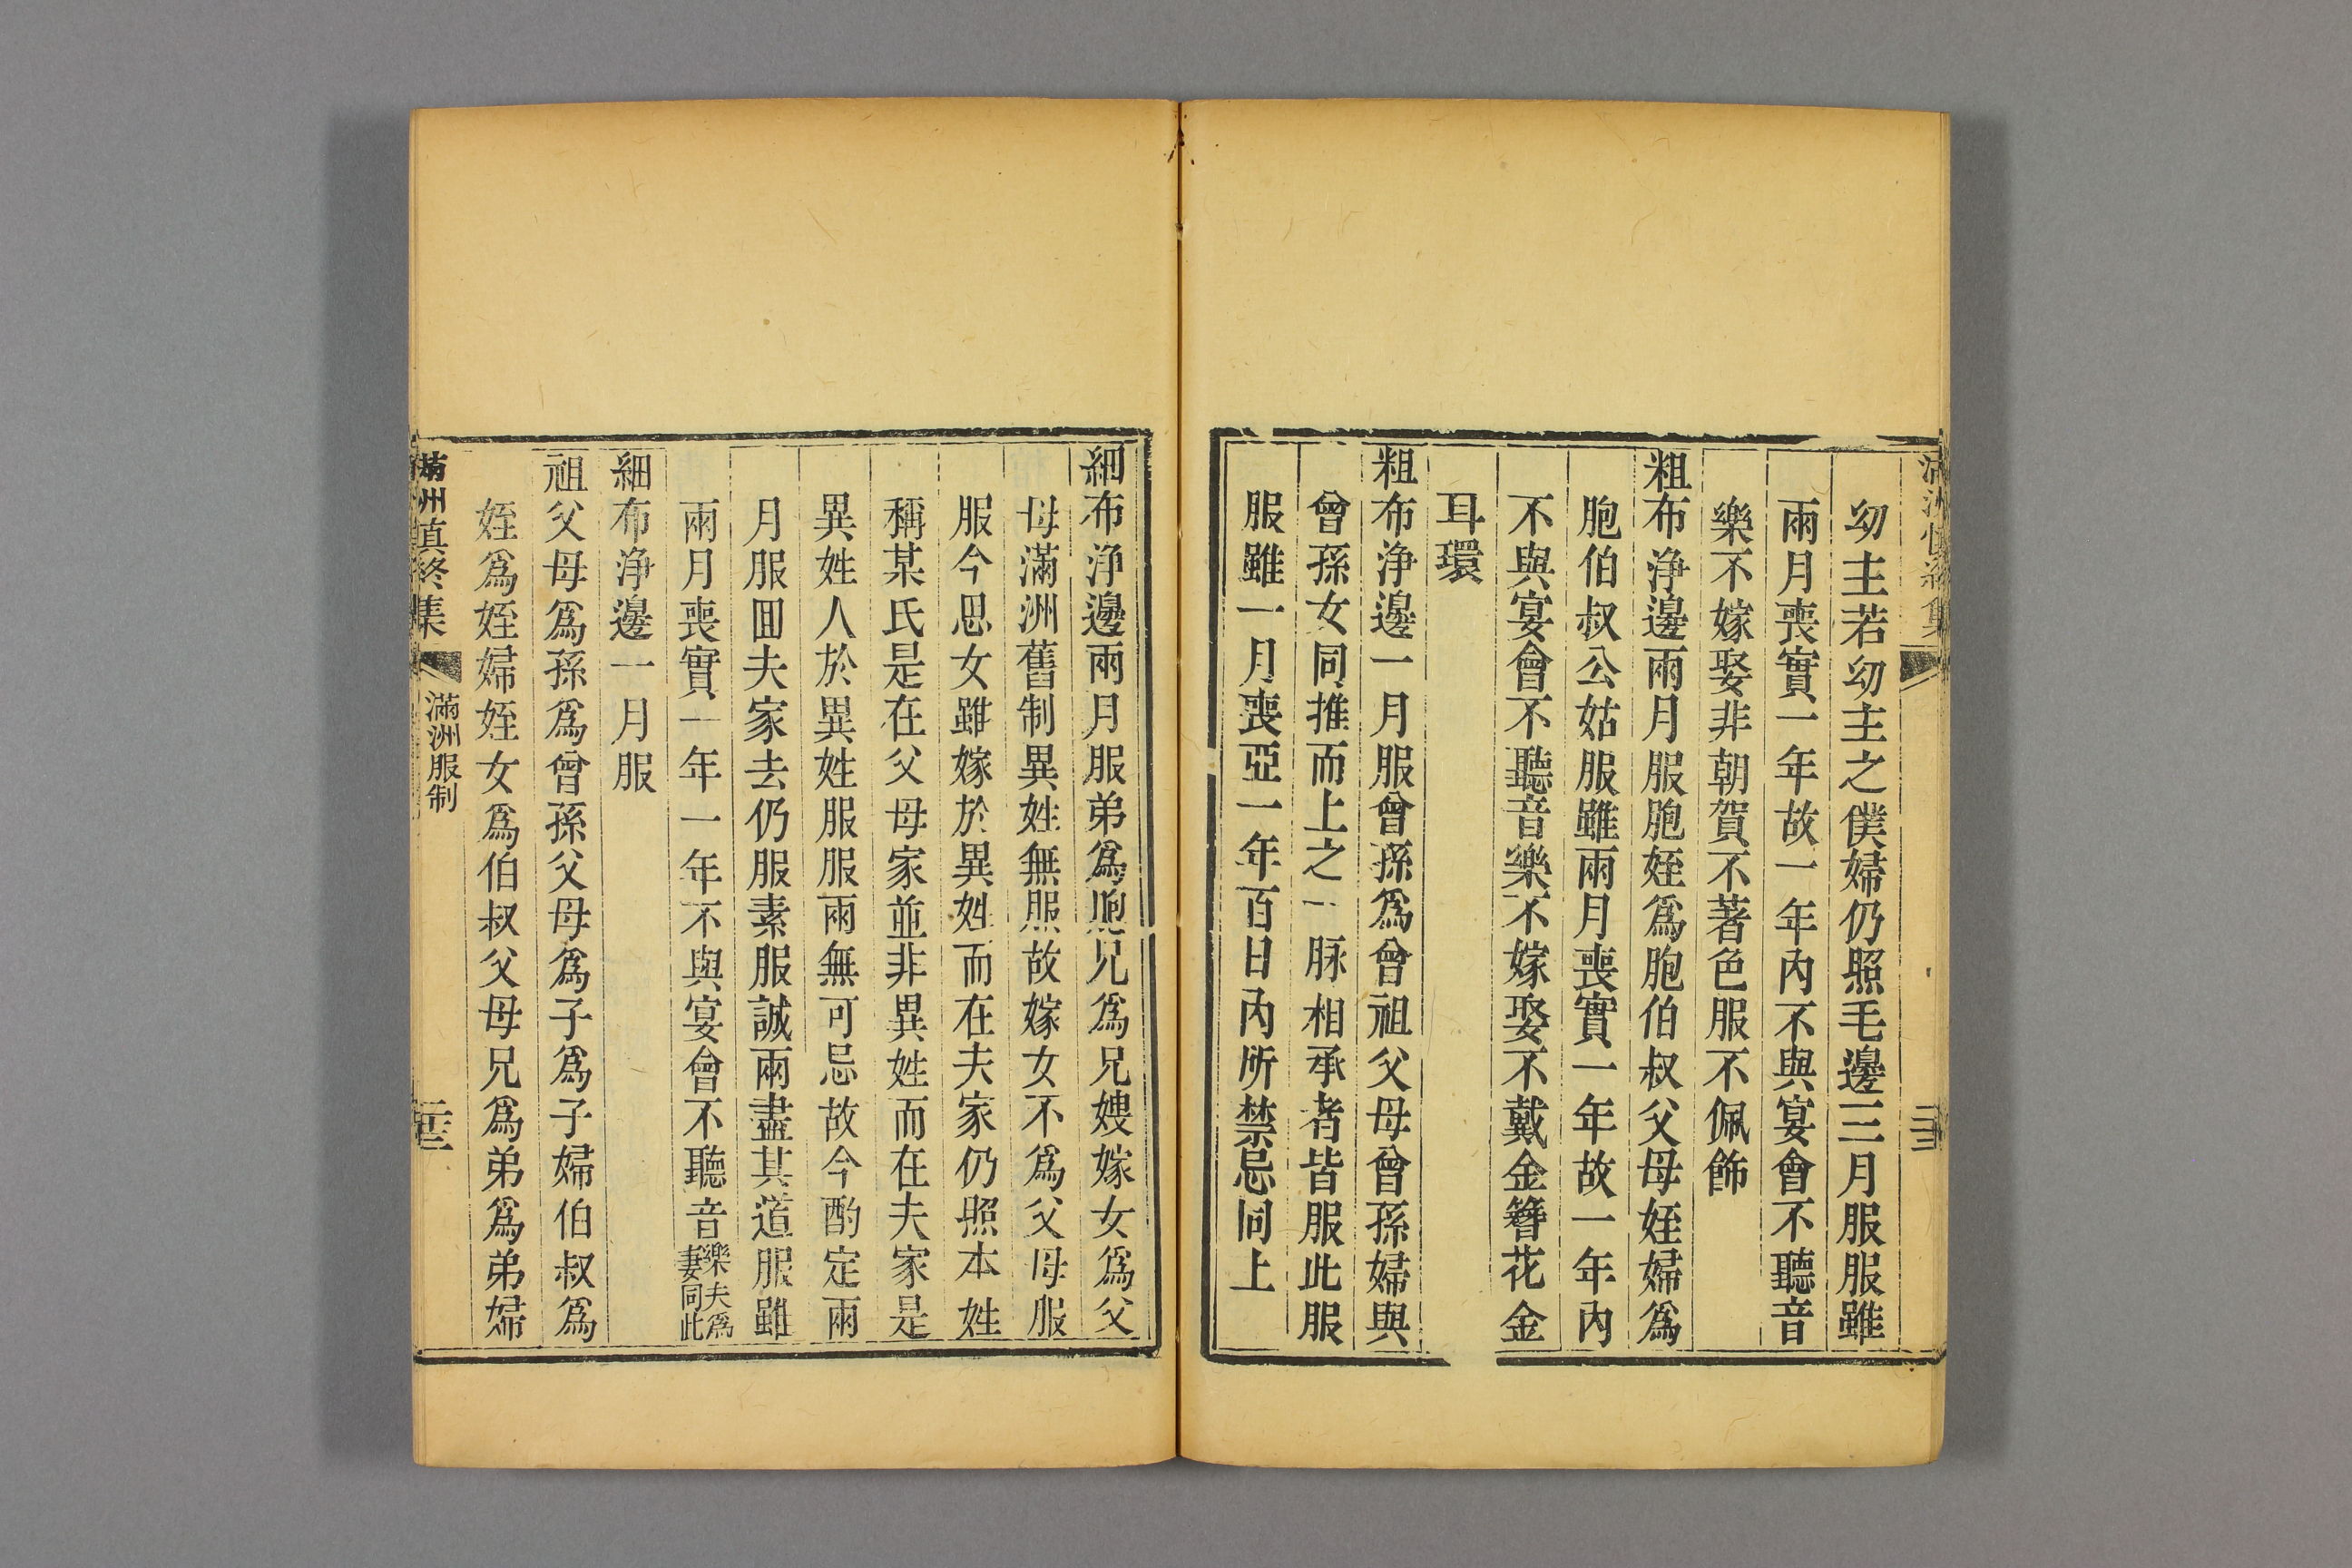 滿洲慎終集
幼主若幼主之僕婦仍照毛邊三月服服雖
兩月喪實一年故一年內不與宴會不聽音
樂不嫁娶非朝賀不著色服不佩飾
粗布浄邊兩月服胞姪爲胞伯叔父母姪婦爲
胞伯叔公姑服雖兩月喪實一年故一年內
不與宴會不聽音樂不嫁娶不戴金簪花金
耳環
粗布浄邊一月服曾孫爲曾祖父母曾孫婦與
曾孫女同推而上之一脉相承者皆服此服
服雖一月喪亞一年百日內所禁忌同上
細布浄邊兩月服弟爲胞兄爲兄嫂嫁女爲父
母滿洲舊制異姓無服故嫁女不爲父母服
服今思女雖嫁於異姓而在夫家仍照本姓
稱某氏是在父母家並非異姓而在夫家是
異姓人於異姓服服兩無可忌故今酌定兩
月服囬夫家去仍服素服誠兩盡其道服雖
兩月喪實一年一年不與宴會不聽音樂夫爲妻同此
細布浄邊一月服
祖父母爲孫爲曾孫父母爲子爲子婦伯叔爲
姪爲姪婦姪女爲伯叔父母兄爲弟爲弟婦
滿洲慎終集
滿洲服制